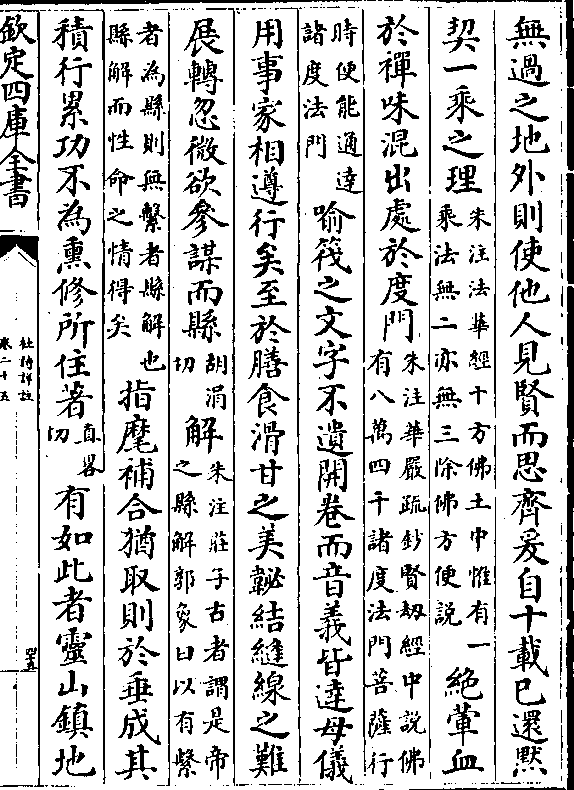 無過之地外則使他人見賢而思齊爰自十載已還黙
契一乘之理朱注法華經十方佛土中惟有一乘法無二亦無三除佛方便説絶葷血
於禪味混出處於度門朱注華嚴疏鈔賢劫經中説佛有八萬四千諸度法門菩薩行
時便能通達諸度法門喻筏之文字不遺開卷而音義皆達母儀
用事家相遵行矣至於膳食滑甘之美鞶結縫線之難
展轉忽微欲參謀而縣胡涓切解朱注莊子古者謂是帝之縣解郭象曰以有繫
者為縣則無繫者縣解也縣解而性命之情得矣指麾補合猶取則於垂成其
積行累功不為熏修所住著直略切有如此者靈山鎮地
欽定四庫全書
杜詩詳註
卷二十五